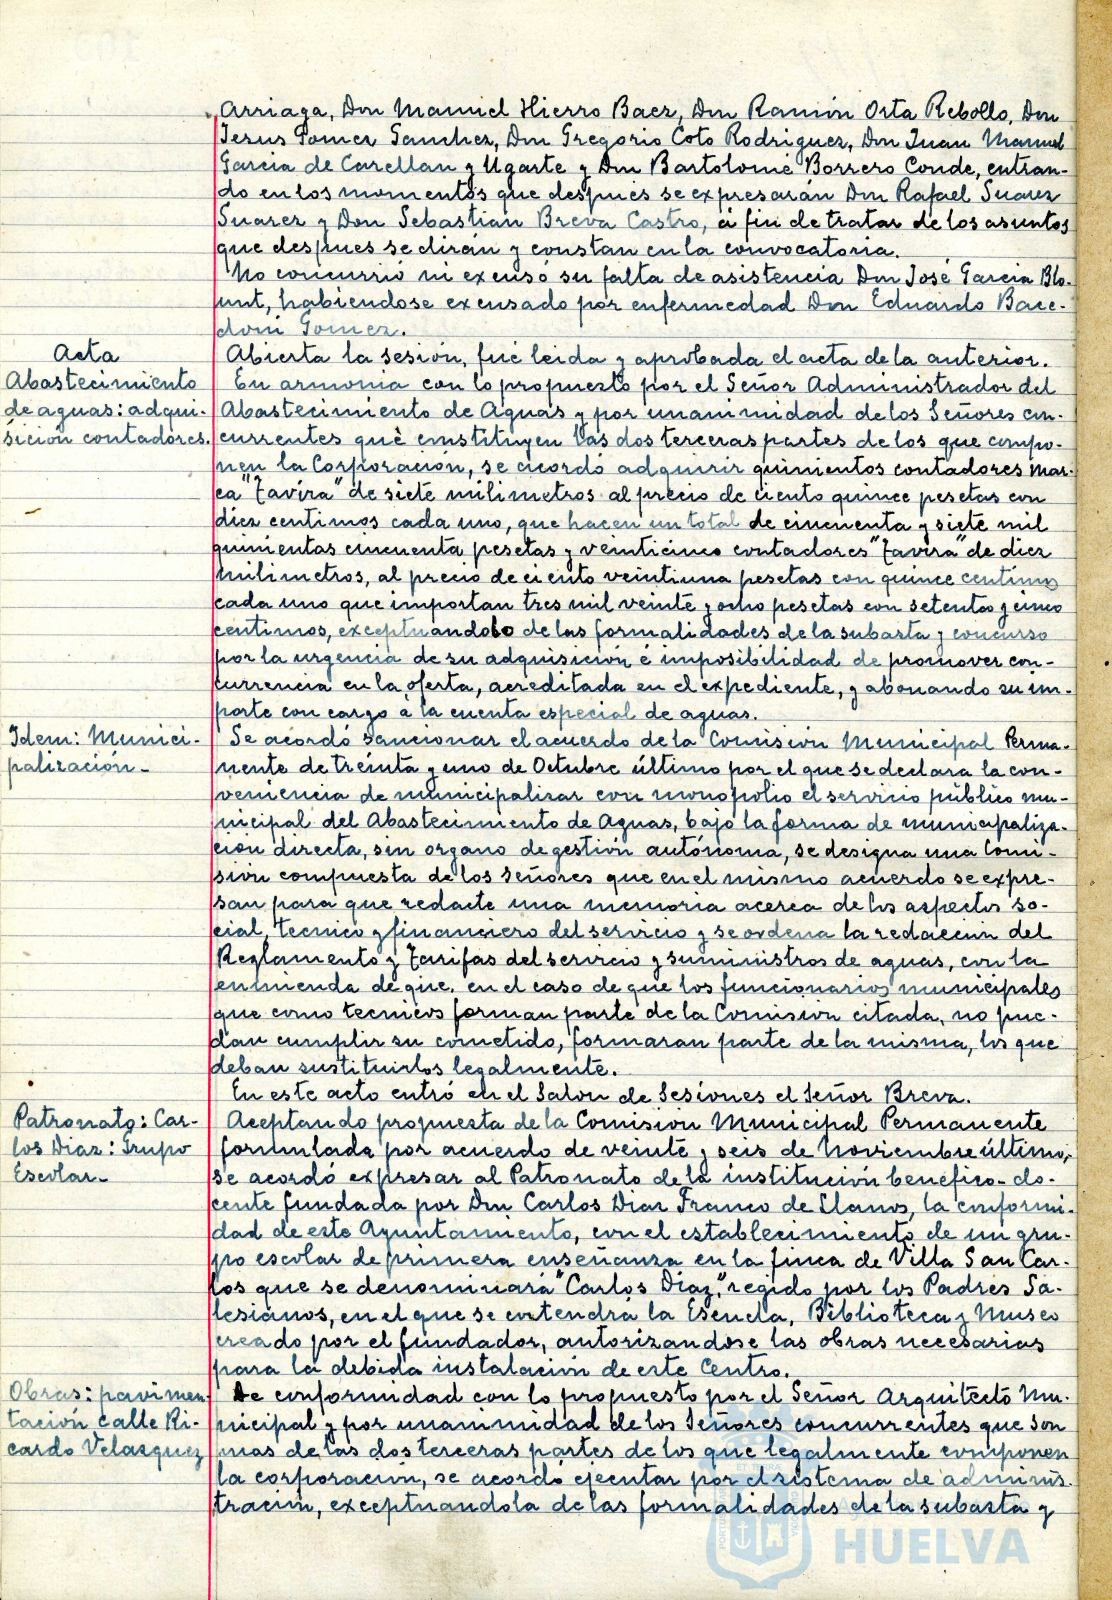 Arriaga, Don Manuel Hierro Baez, Don Ramón Orta Rebollo, Don
Jesus Pomer Sanchez, Don Gregorio Coto Rodriguez, Don Juan Manuel
Garcia de Carellan y Ugarte y Don Bartolomé Borrero Conde, entran-
do en los momentos que después se expresarán Don Rafael Suarez
Suarez y Don Sebastián Breva Castro, á fin de tratar de los asuntos
que despues se dirán y constan en la convocatoria.
No concurrió ni excusó su falta de asistencia Don José Garcia Blo-
unt, habiéndose excusado por enfermedad Don Eduardo Bace-
doni Gomez.
Acta
Abierta la sesión, fué leida y aprobada el acta de la anterior.
Abastecimiento
de aguas: adqui-
sición contadores.
En armonia con lo propuesto por el Señor Administrador del
Abastecimiento de Aguas y por unanimidad de los Señores con-
currentes què constituyen las dos terceras partes de los que compo-
nen la Corporación, se acordó adquirir quinientos contadores mar-
ca "Tavira" de siete milimetros al precio de ciento quince pesetas con
diez centimos cada uno, que hacen un total de cincuenta y siete mil
quinientas cincuenta pesetas y veinticinco contadores "Tavira" de diez
milimetros, al precio de ciento veintiuna pesetas con quince centimos
cada uno que importan tres mil veinte y ocho pesetas con setenta y cinco
centimos, exceptuandolo de las formalidades de la subasta y concurso
por la urgencia de su adquisición é imposibilidad de promover con-
currencia en la oferta, acreditada en el expediente, y abonando su im-
porte con cargo á la cuenta especial de aguas.
Idem: Munici-
palización-
Se acordó sancionar el acuerdo de la Comisión Municipal Perma-
nente de treinta y uno de Octubre último por el que se declara la con-
veniencia de municipalizar con monopolio el servicio público mu-
nicipal del Abastecimiento de Aguas, bajo la forma de municipaliza-
ción directa, sin organo de gestión autónoma, se designa una Comi-
sión compuesta de los señores que en el mismo acuerdo se expre-
san para que redacte una memoria acerca de los aspectos so-
cial, tecnico y financiero del servicio y se ordena la redaccion del
Reglamento y Tarifas del servicio y suministros de aguas, con la
enmienda de que, en el caso de que los funcionarios municipales
que como tecnicos forman parte de la Comisión citada, no pue-
dan cumplir su cometido, formaran parte de la misma, los que
deban sustituirlos legalmente.
En este acto entró en el Salon de Sesiones el Señor Breva.
Patronato: Car-
los Diaz: Grupo
Escolar-
Aceptando propuesta de la Comisión Municipal Permanente
formulada por acuerdo de veinte y seis de Noviembre último,
se acordó expresar al Patronato de la institución benéfico-do-
cente fundada por Don Carlos Diaz Franco de Llanos, la conformi-
dad de este Ayuntamiento, con el establecimiento de un gru-
po escolar de primera enseñanza en la finca de Villa San Car-
los que se denominará "Carlos Diaz", regido por los Padres Sa-
lesianos, en el que se entendrá la Escuela, Biblioteca y Museo
creado por el fundador, autorizandose las obras necesarias
para la debida instalación de este Centro.
Obras: pavimen-
tación calle Ri-
cardo Velazquez
De conformidad con lo propuesto por el Señor Arquitecto Mu-
nicipal y por unanimidad de los Señores concurrentes que son
mas de las dos terceras partes de los que legalmente componen
la corporación, se acordó ejecutar por el sistema de adminis-
tración, exceptuandola de las formalidades de la subasta y
HUELVA